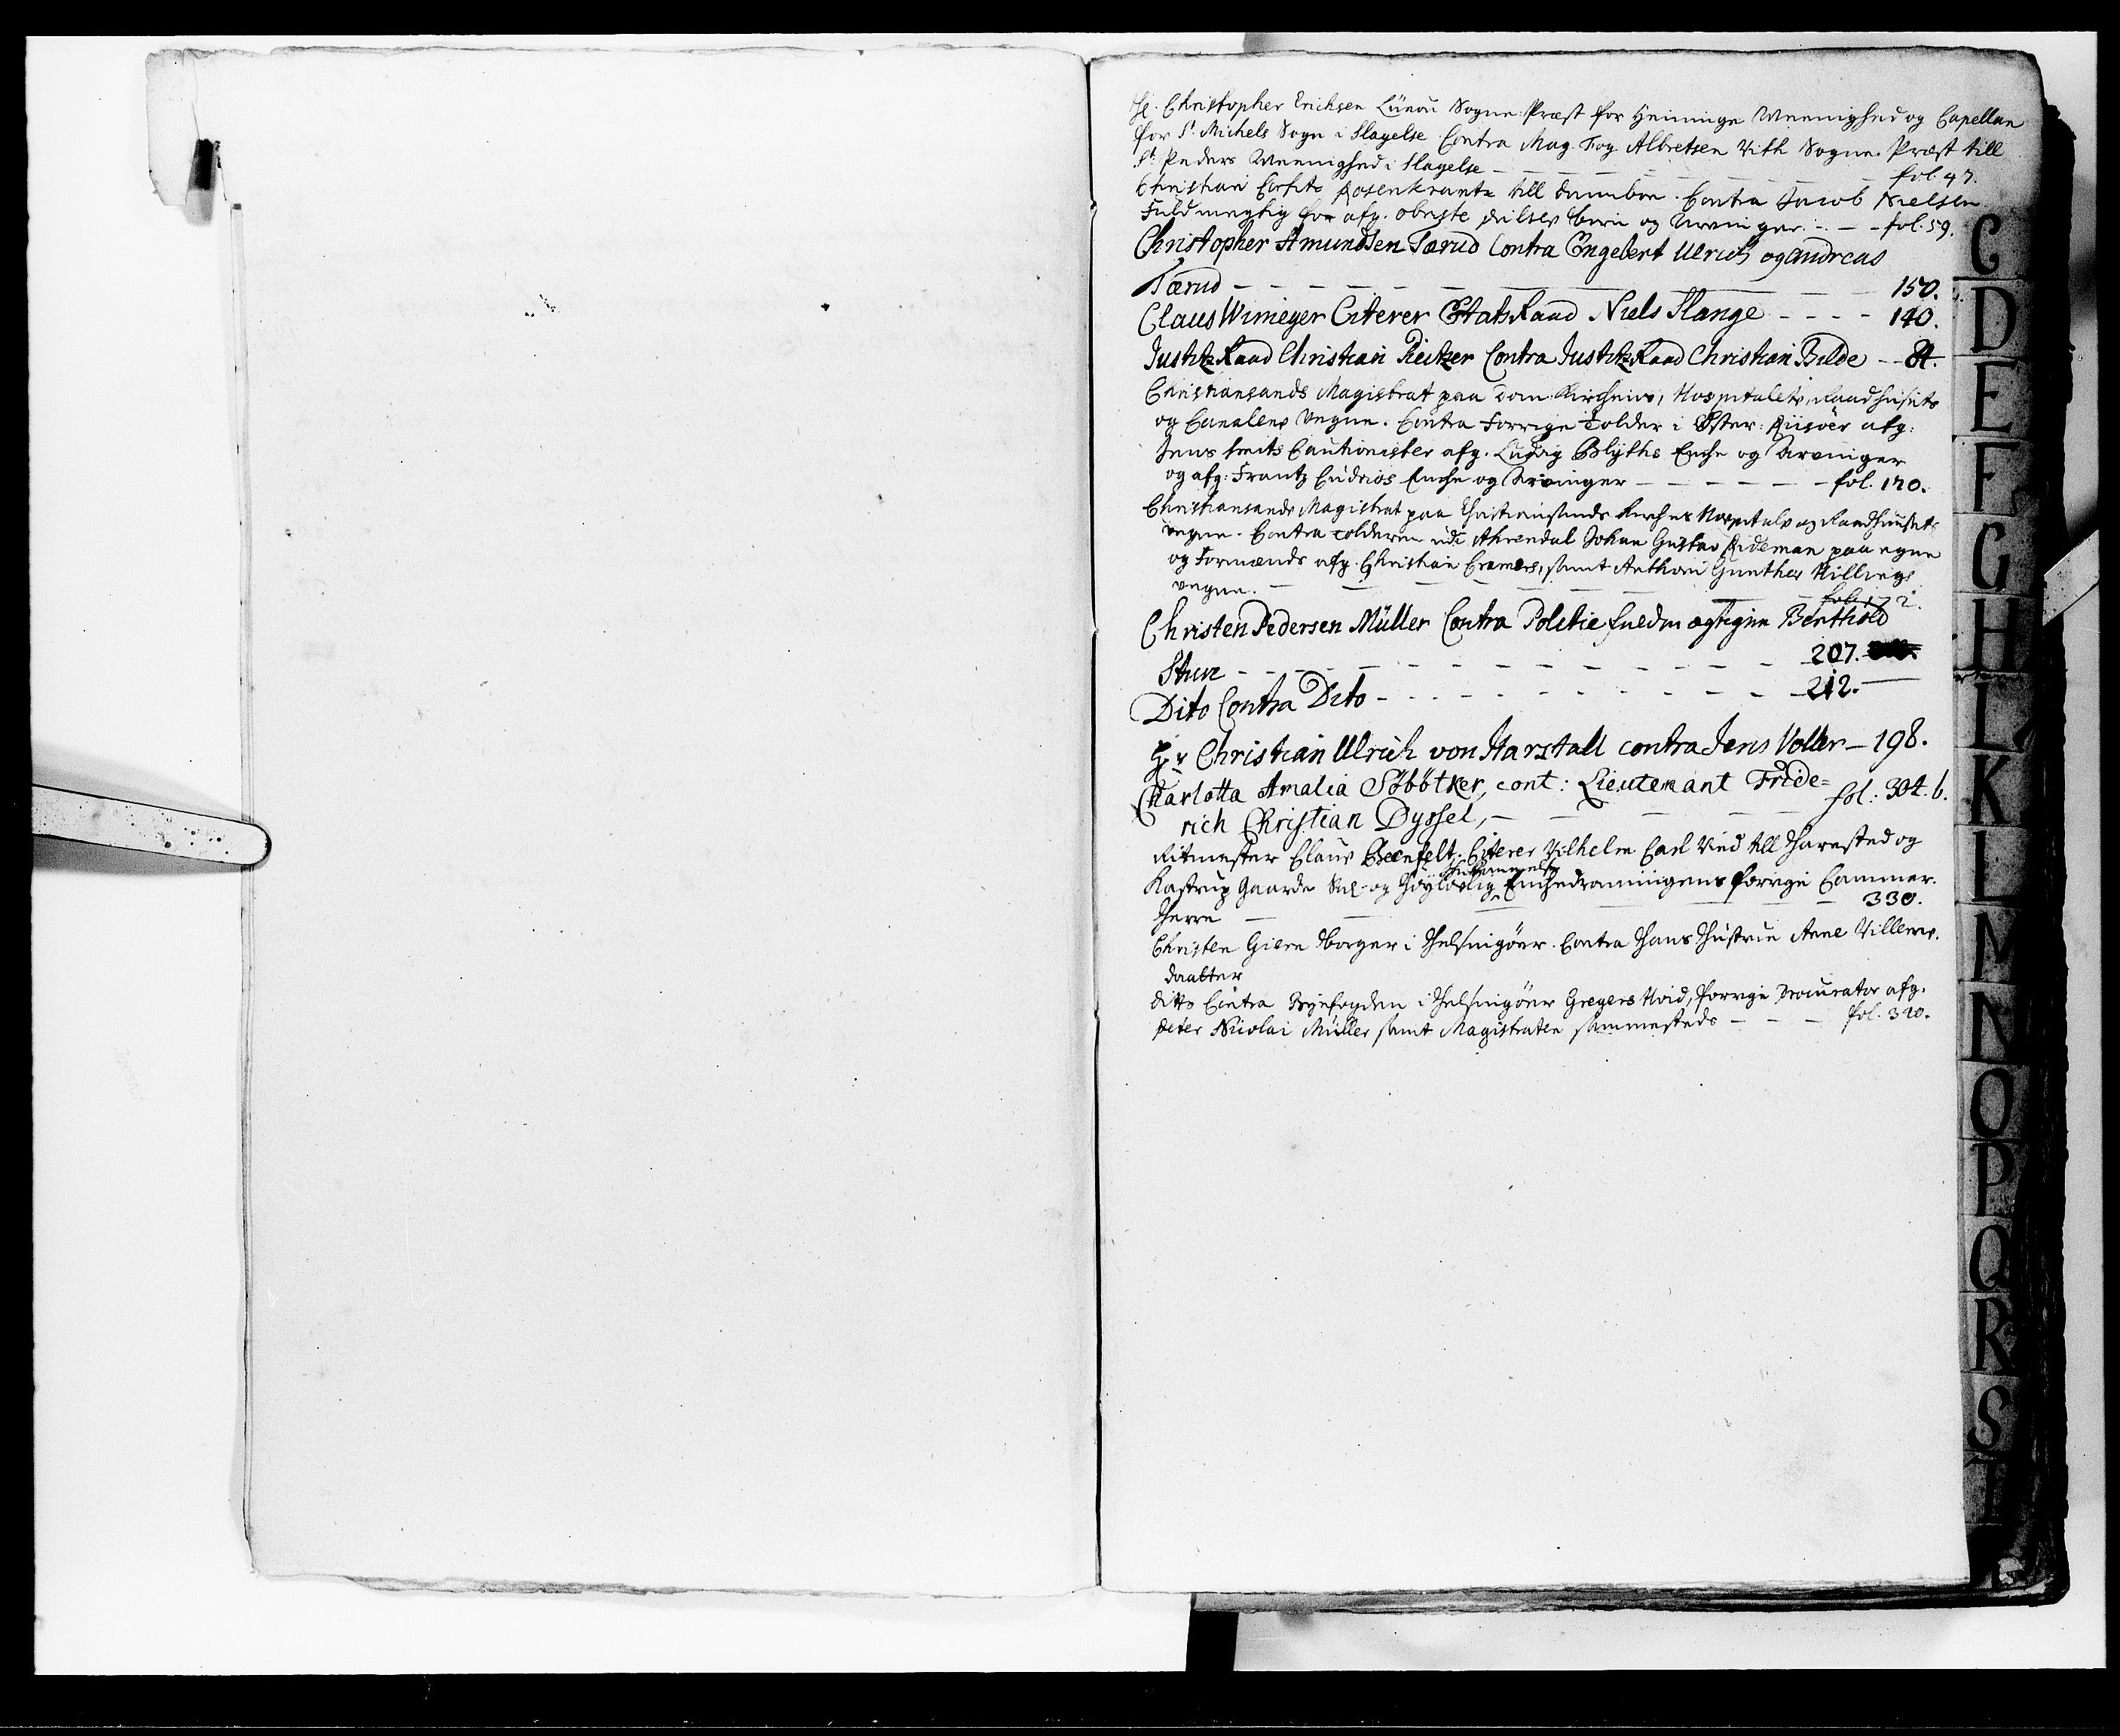 Hr. Christopher Erichsen Lünou Sogne-Præst for Heininge Meenighed og Capellan
for St. Michels Sogn i Slagelse Contra Mag. Fog Albretsen Vith Sogne-Præst till
St. Peders Meenighed i Slagelse - - - fol. 47.
Christian Corfitz Rosenkrantz till Contra Jacob Nielsen
Fuldmegtig for afg. Obriste børn og Arvinger - - - fol. 59.
Christopher Amundsen Tærud Contra Engebert Ulrich og Andreas
Tærud - - - 150.
Claus Wimeyer Citerer EtatsRaad Niels Slange - - - - 140.
JustitzRaad Christian Reitzer Contra JustitzRaad Christian Bilde - - 84.
Christiansands Magistrat paa Dom-Kirchens, Hospitalets, Raadhusets
og Canalens Vegne. Contra Forrige Tolder i Øster-Riisöer afg:
Jens Cautionister afg. Ludvig Blÿths Enche og Arvinger
og afg: Frantz Enche og Arvinger - - - fol. 170.
Christiansands Magistrat paa Christiansands Kirches Hospitals og Raadhuusets
Vegne. Contra Tolderen udi Ahrendal Johan Gustav Rideman paa egne
og Formænds afg. Christian Cramers, samt Anthoni Gunther Hillings
vegne. - - - fol. 172.
Christen Pedersen Müller Contra Politie fuldmægtigen Berthold
Stuve - - - 207.
Dito Contra Dito - - - 212.
Hr Christian Ulrich von Harstall contra Jens Voller - 198.
Charlotta Amalia Söbötker, cont: Lieutenant Fride=
rich Christian Dyssel, - - - fol: 304. b.
Ritmester Claus Beenfelt. Citerer Vilhelm Carl Vind till Harested og
Kastrup Gaarde Sal- og Höylovlig Ihukommelse Enchedronningens forrige Cammer-
Herre - - - 330.
Christen Giern Borger i Helsingöer Contra Hans Hustrue Anne Villems-
daatter
ditto Contra Byefogden i Helsingöer Gregers Hvid, forrige Procurator afg.
Peter Nicolai Müller samt Magistraten sammesteds - - - fol. 340.
C
D
E
F
G
H
I
K
L
M
N
O
P
Q
R
S
T